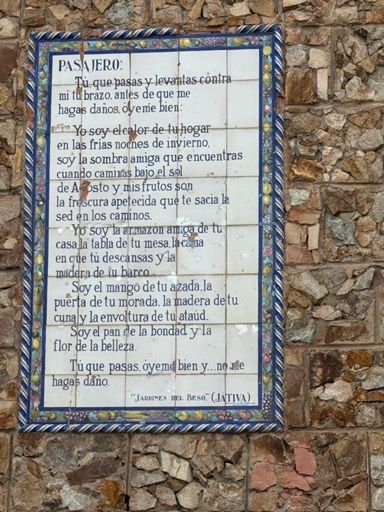 PASAJERO:
Tú, que pasas y levantas contra
mi tu brazo, antes de que me
hagas daños, óyeme bien:
Yo soy el calor de tu hogar
en las frias noches de invierno,
soy la sombra amiga que encuentras
cuando caminas bajo el sol
de Agosto y mis frutos son
la frescura apetecida que te sacia la
sed en los caminos.
Yo soy la armazón amiga de tu
casa, la tabla de tu mesa, la cama
en que tú descansas y la
madera de tu barco.
Soy el mango de tu azada, la
puerta de tu morada, la madera de tu
cuna y la envoltura de tu ataúd.
Soy el pan de la bondad y la
flor de la belleza.
Tú que pasas, oyeme bien y... no me
hagas daño.
"JARDINES DEL BESO," (JATIVA)